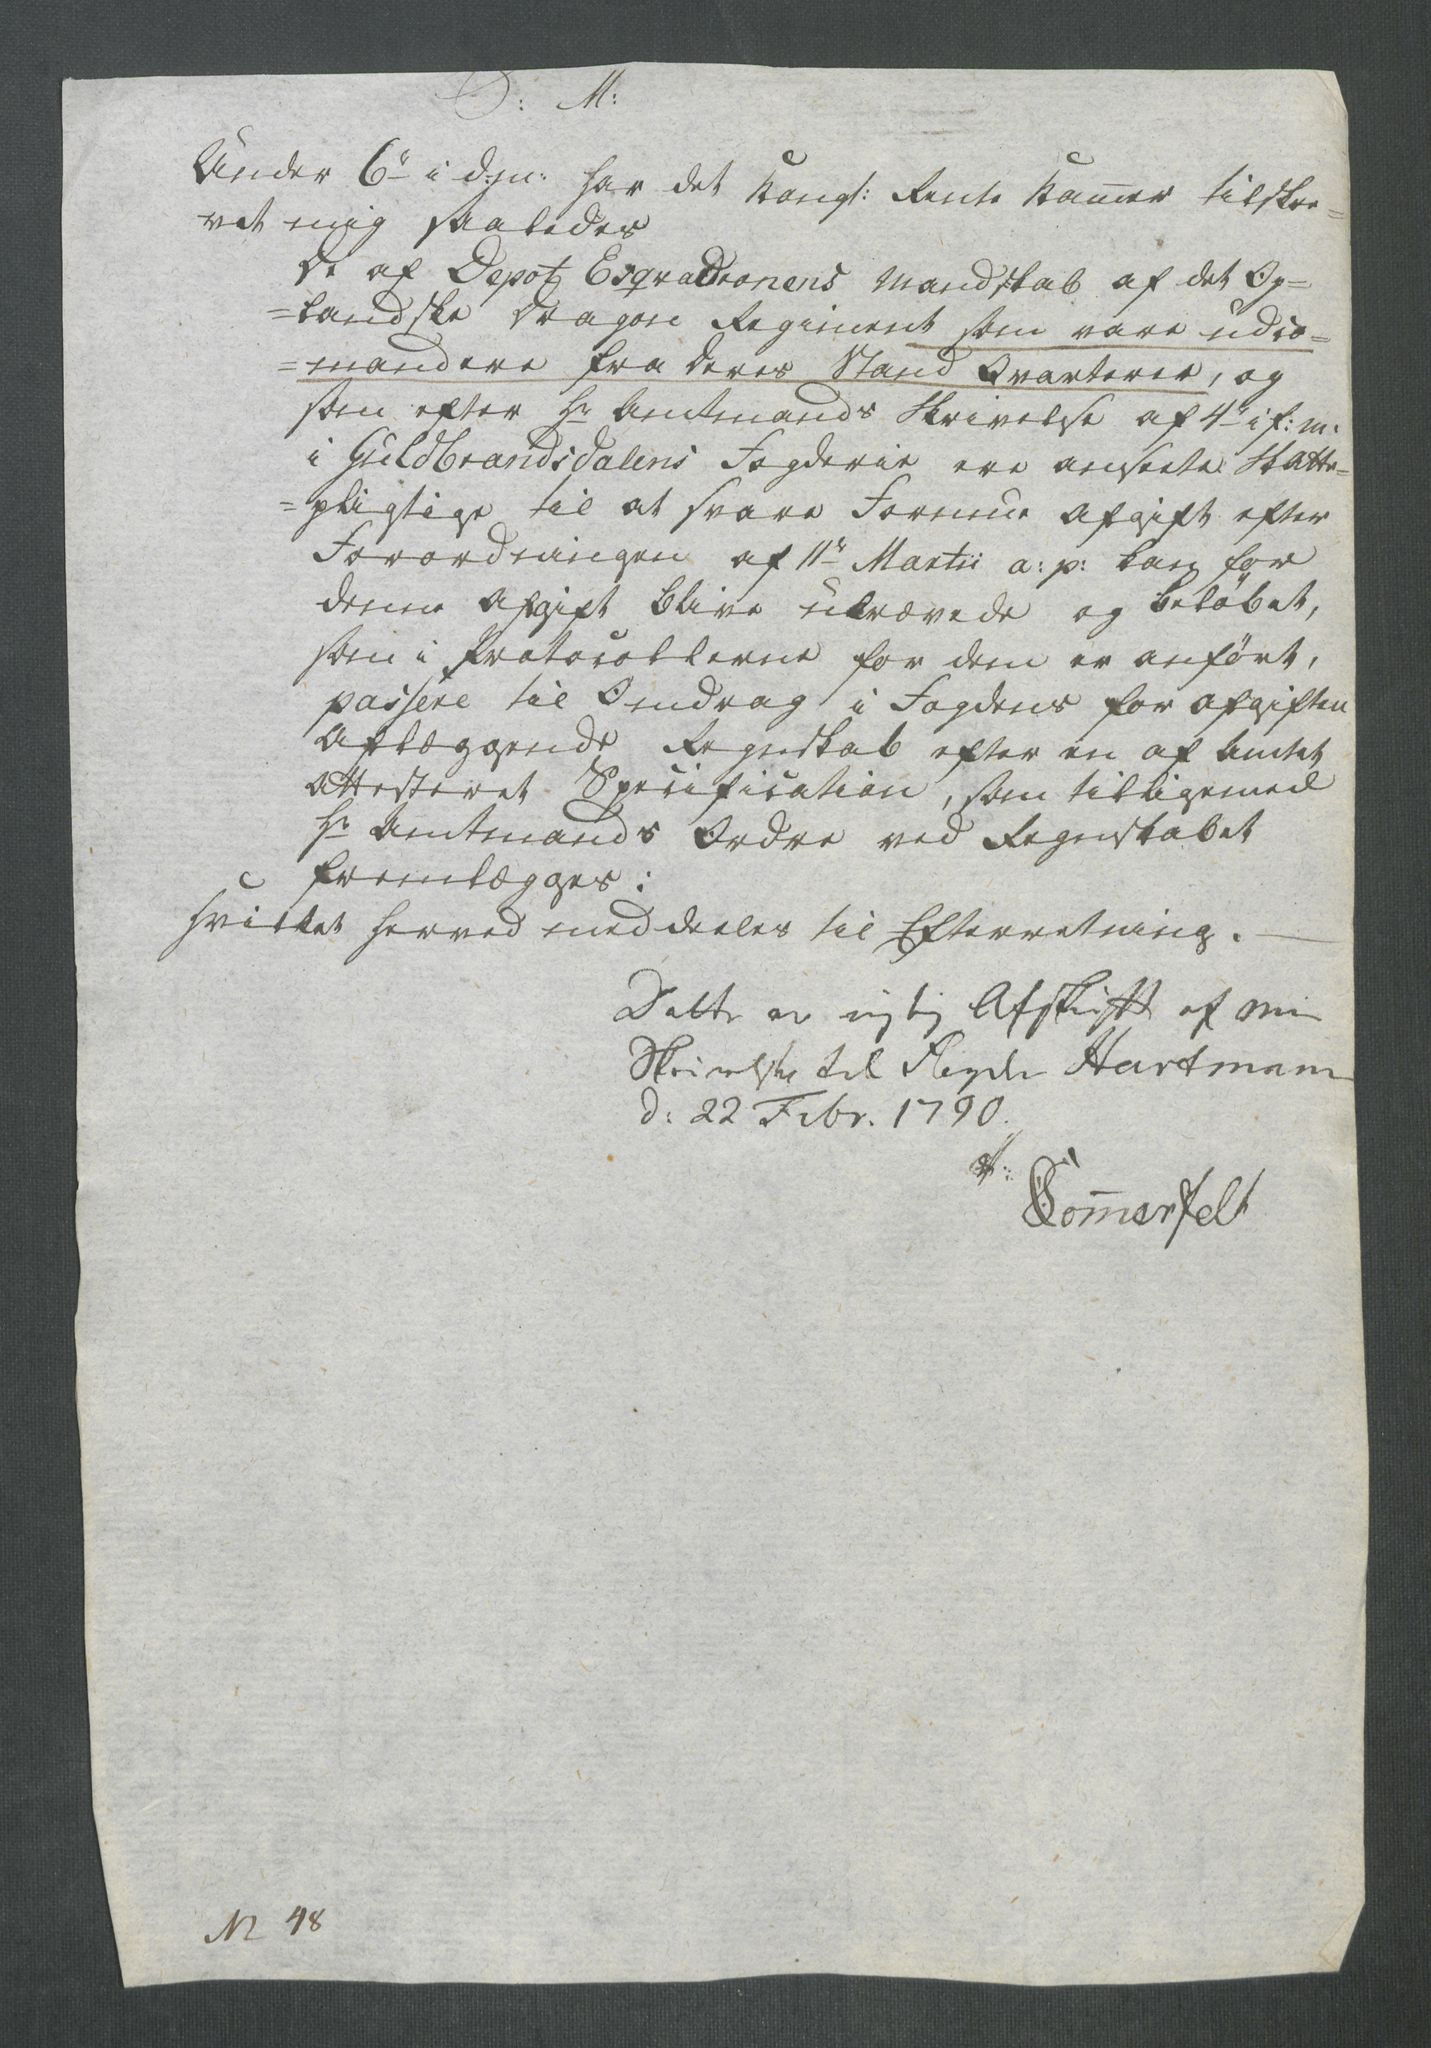 P: M:
Under 6te i d: m: har det Kongl: Rente Kam̄er tilskre=
vet mig saaledes
De af Depot Esqvadronens Mandskab af det Op=
=landske Dragon Regiment som vare udco=
=mandere fra deres Stand Qvarterer, og
som efter Hr Amtmands Skrivelse af 4de i f: m:
i Guldbrandsdalens Fogderie ere anseete Skatte=
=pligtige til at svare Formue Afgift efter
Forordningen af 11te Martii a: p: kan for
denne Afgift blive ukrævede og beløbet,
som i Protocollerne for dem er anført,
passere til Omdrag i Fogdens for afgiften
Aflæggende Regnskab efter en af Amtet
Attesteret Specification, som tilligemed
Hr Amtmands Ordre ved Regnskabet
fremlægges:
Hvilket herved meddeeles til Efterretning.
Dette er rigtig Afskrift af min
Skrivelse til Fogden Hartmann
d: 22 Febr. 1790.
Som̄erfelt
N 48